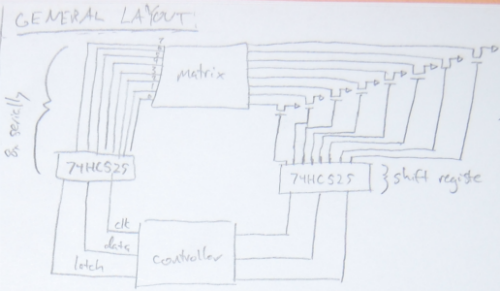 GENERAL LAYOUT:
Matrix
8x serielly
74HC525
74HC525
} shift registe
clk
data
latch
controller